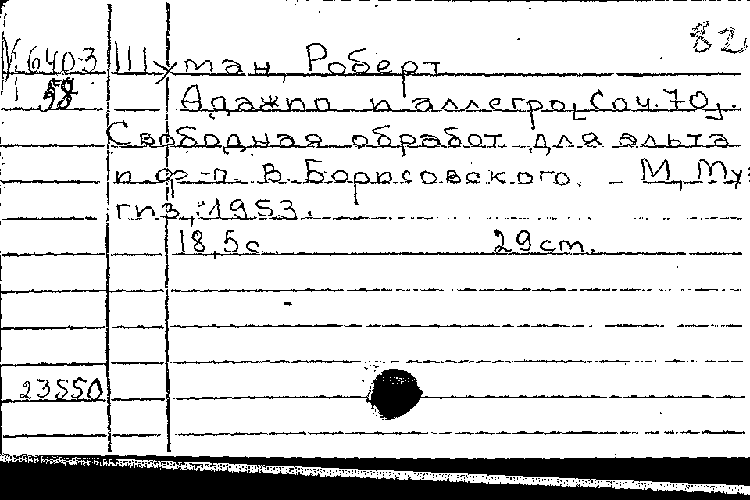 82
У.6403 Шуман, Роберт
58 Адажио и аллегро [Соч. 70].
Свободная обработ для альта
и ф-п. В. Борисовского. – М, Муз
гиз, 1953.
18,5с 29 cm.
23550